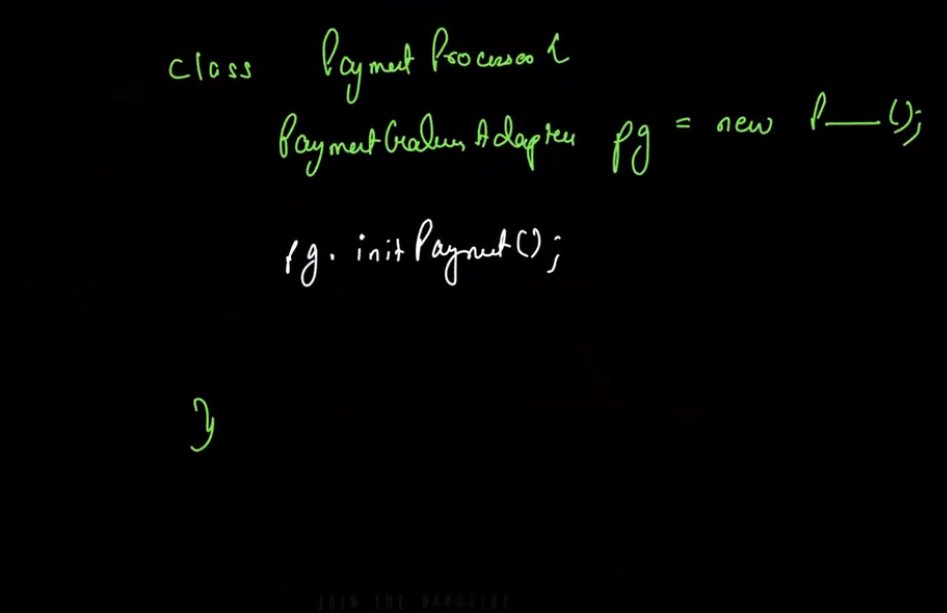 class Payment Processor {
PaymentGatewayAdapter pg = new P___();
pg.initPayment();
}
JOIN THE DARKSIDE